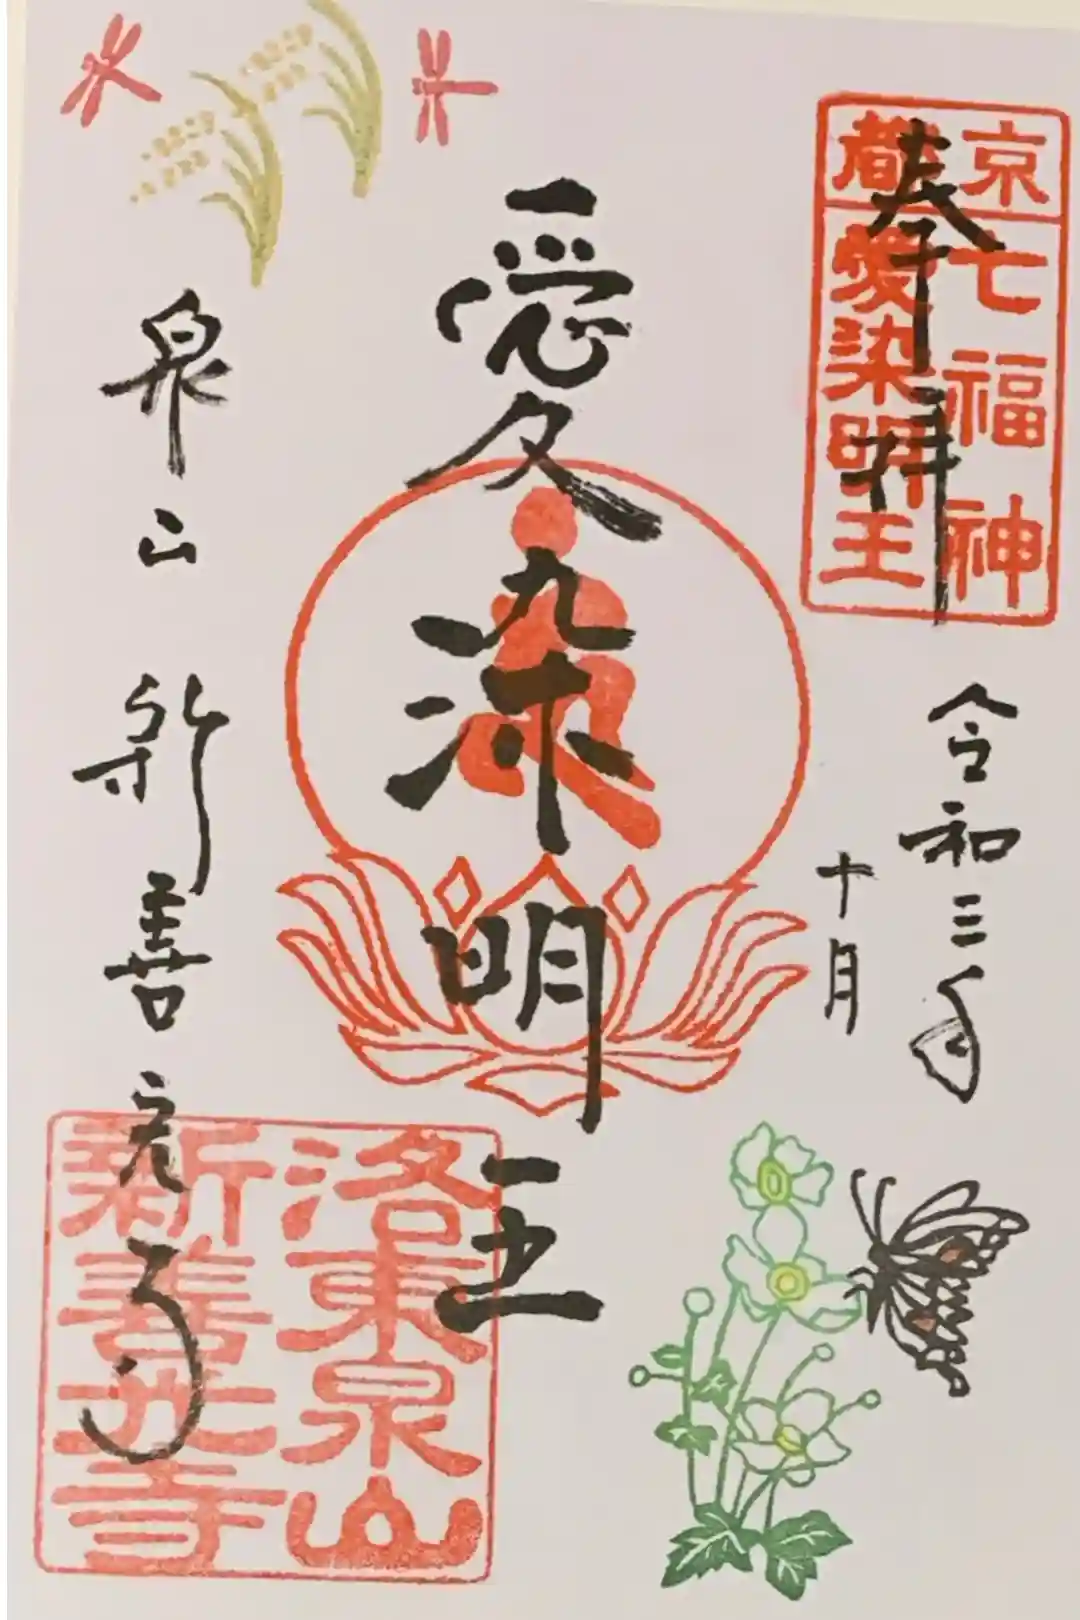 奉拝
京都
七福神
愛染明王
令和三年
十月
愛染明王
泉山 新善光寺
洛東泉山
新善光寺